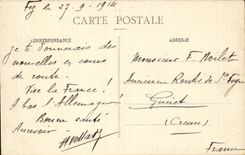 Fez le 27-9-1914
CARTE POSTALE
CORRESPONDANCE
ADRESSE
Je te donnerais des
nouvelles en cours
de route -
Vive la France !
A bas l'Allemagne !
Bonne santé
Au revoir
Monsieur F.
Ancienne Route de
Guéret
(Creuse)
France